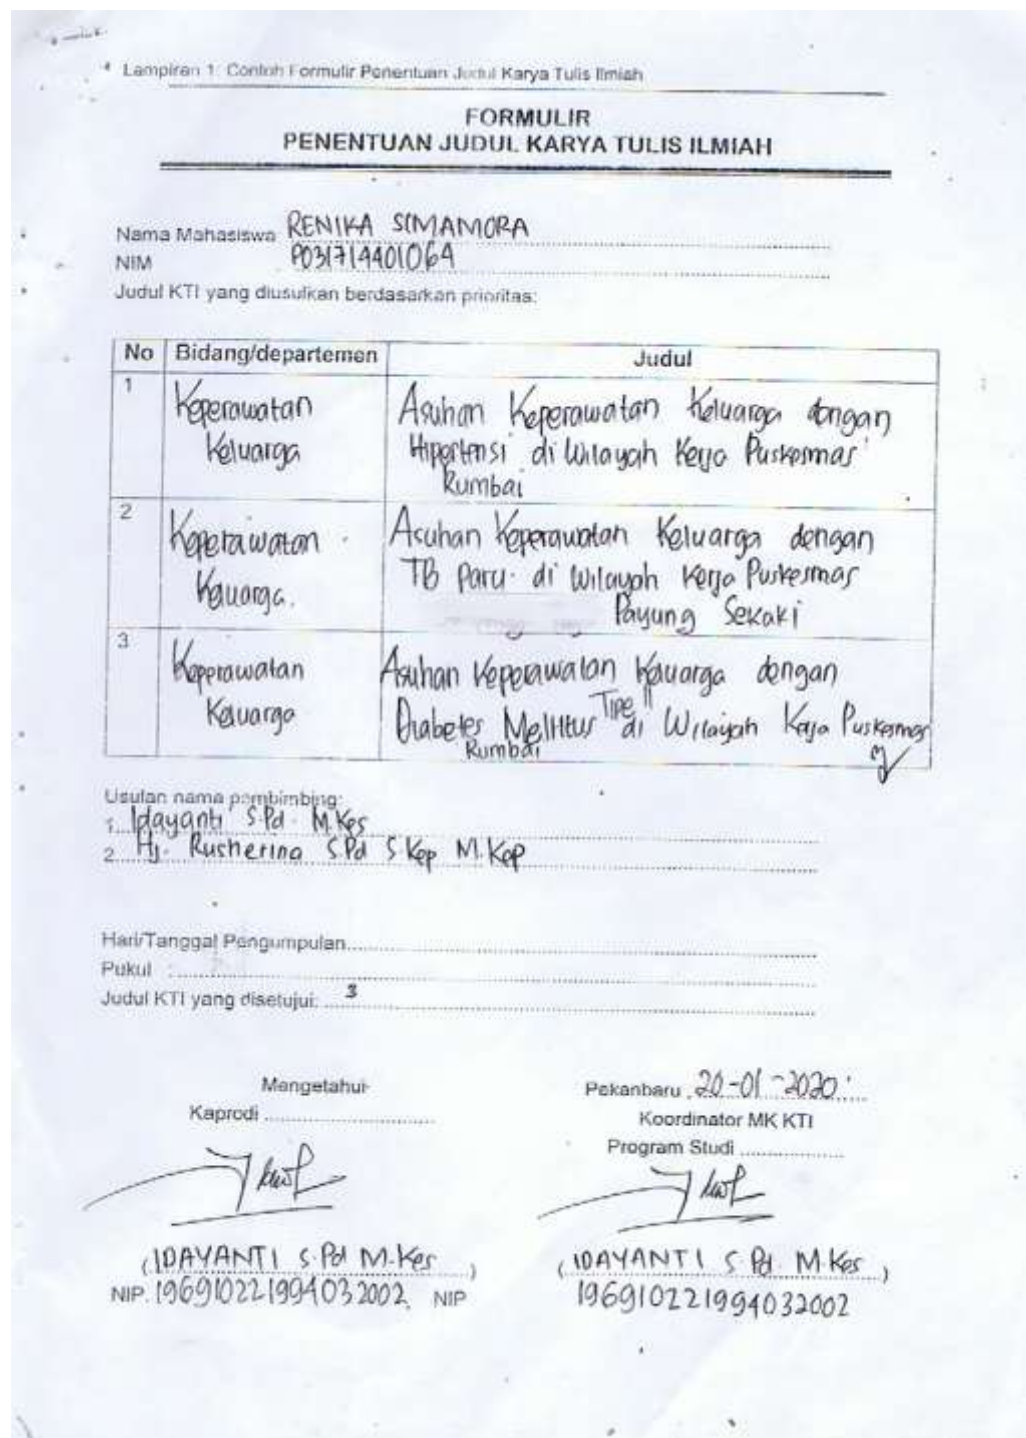 * Lampiran 1: Contoh Formulir Penentuan Judul Karya Tulis Ilmiah
FORMULIR
PENENTUAN JUDUL KARYA TULIS ILMIAH
Nama Mahasiswa RENIKA SIMAMORA
NIM P031714401064
Judul KTI yang diusulkan berdasarkan prioritas:
No Bidang/departemen Judul
1 Keperawatan Asuhan Keperawatan Keluarga dengan
Keluarga Hipertensi di Wilayah Kerja Puskesmas
Rumbai
2 Keperawatan Asuhan Keperawatan Keluarga dengan
Keluarga. TB Paru di Wilayah Kerja Puskesmas
Payung Sekaki
3 Keperawatan Asuhan Keperawatan Keluarga dengan
Keluarga Diabetes Mellitus Tipe II di Wilayah Kerja Puskesmas
Rumbai
Usulan nama pembimbing:
1. Idayanti S.Pd. M.Kes
2. Hj. Rusherina S.Pd S.Kep M.Kep
Hari/Tanggal Pengumpulan
Pukul :
Judul KTI yang disetujui: 3
Mengetahui Pekanbaru, 20-01-2020
Kaprodi Koordinator MK KTI
Program Studi
(IDAYANTI S.Pd M.Kes) (IDAYANTI S.Pd. M.Kes)
NIP. 196910221994032002 NIP 196910221994032002